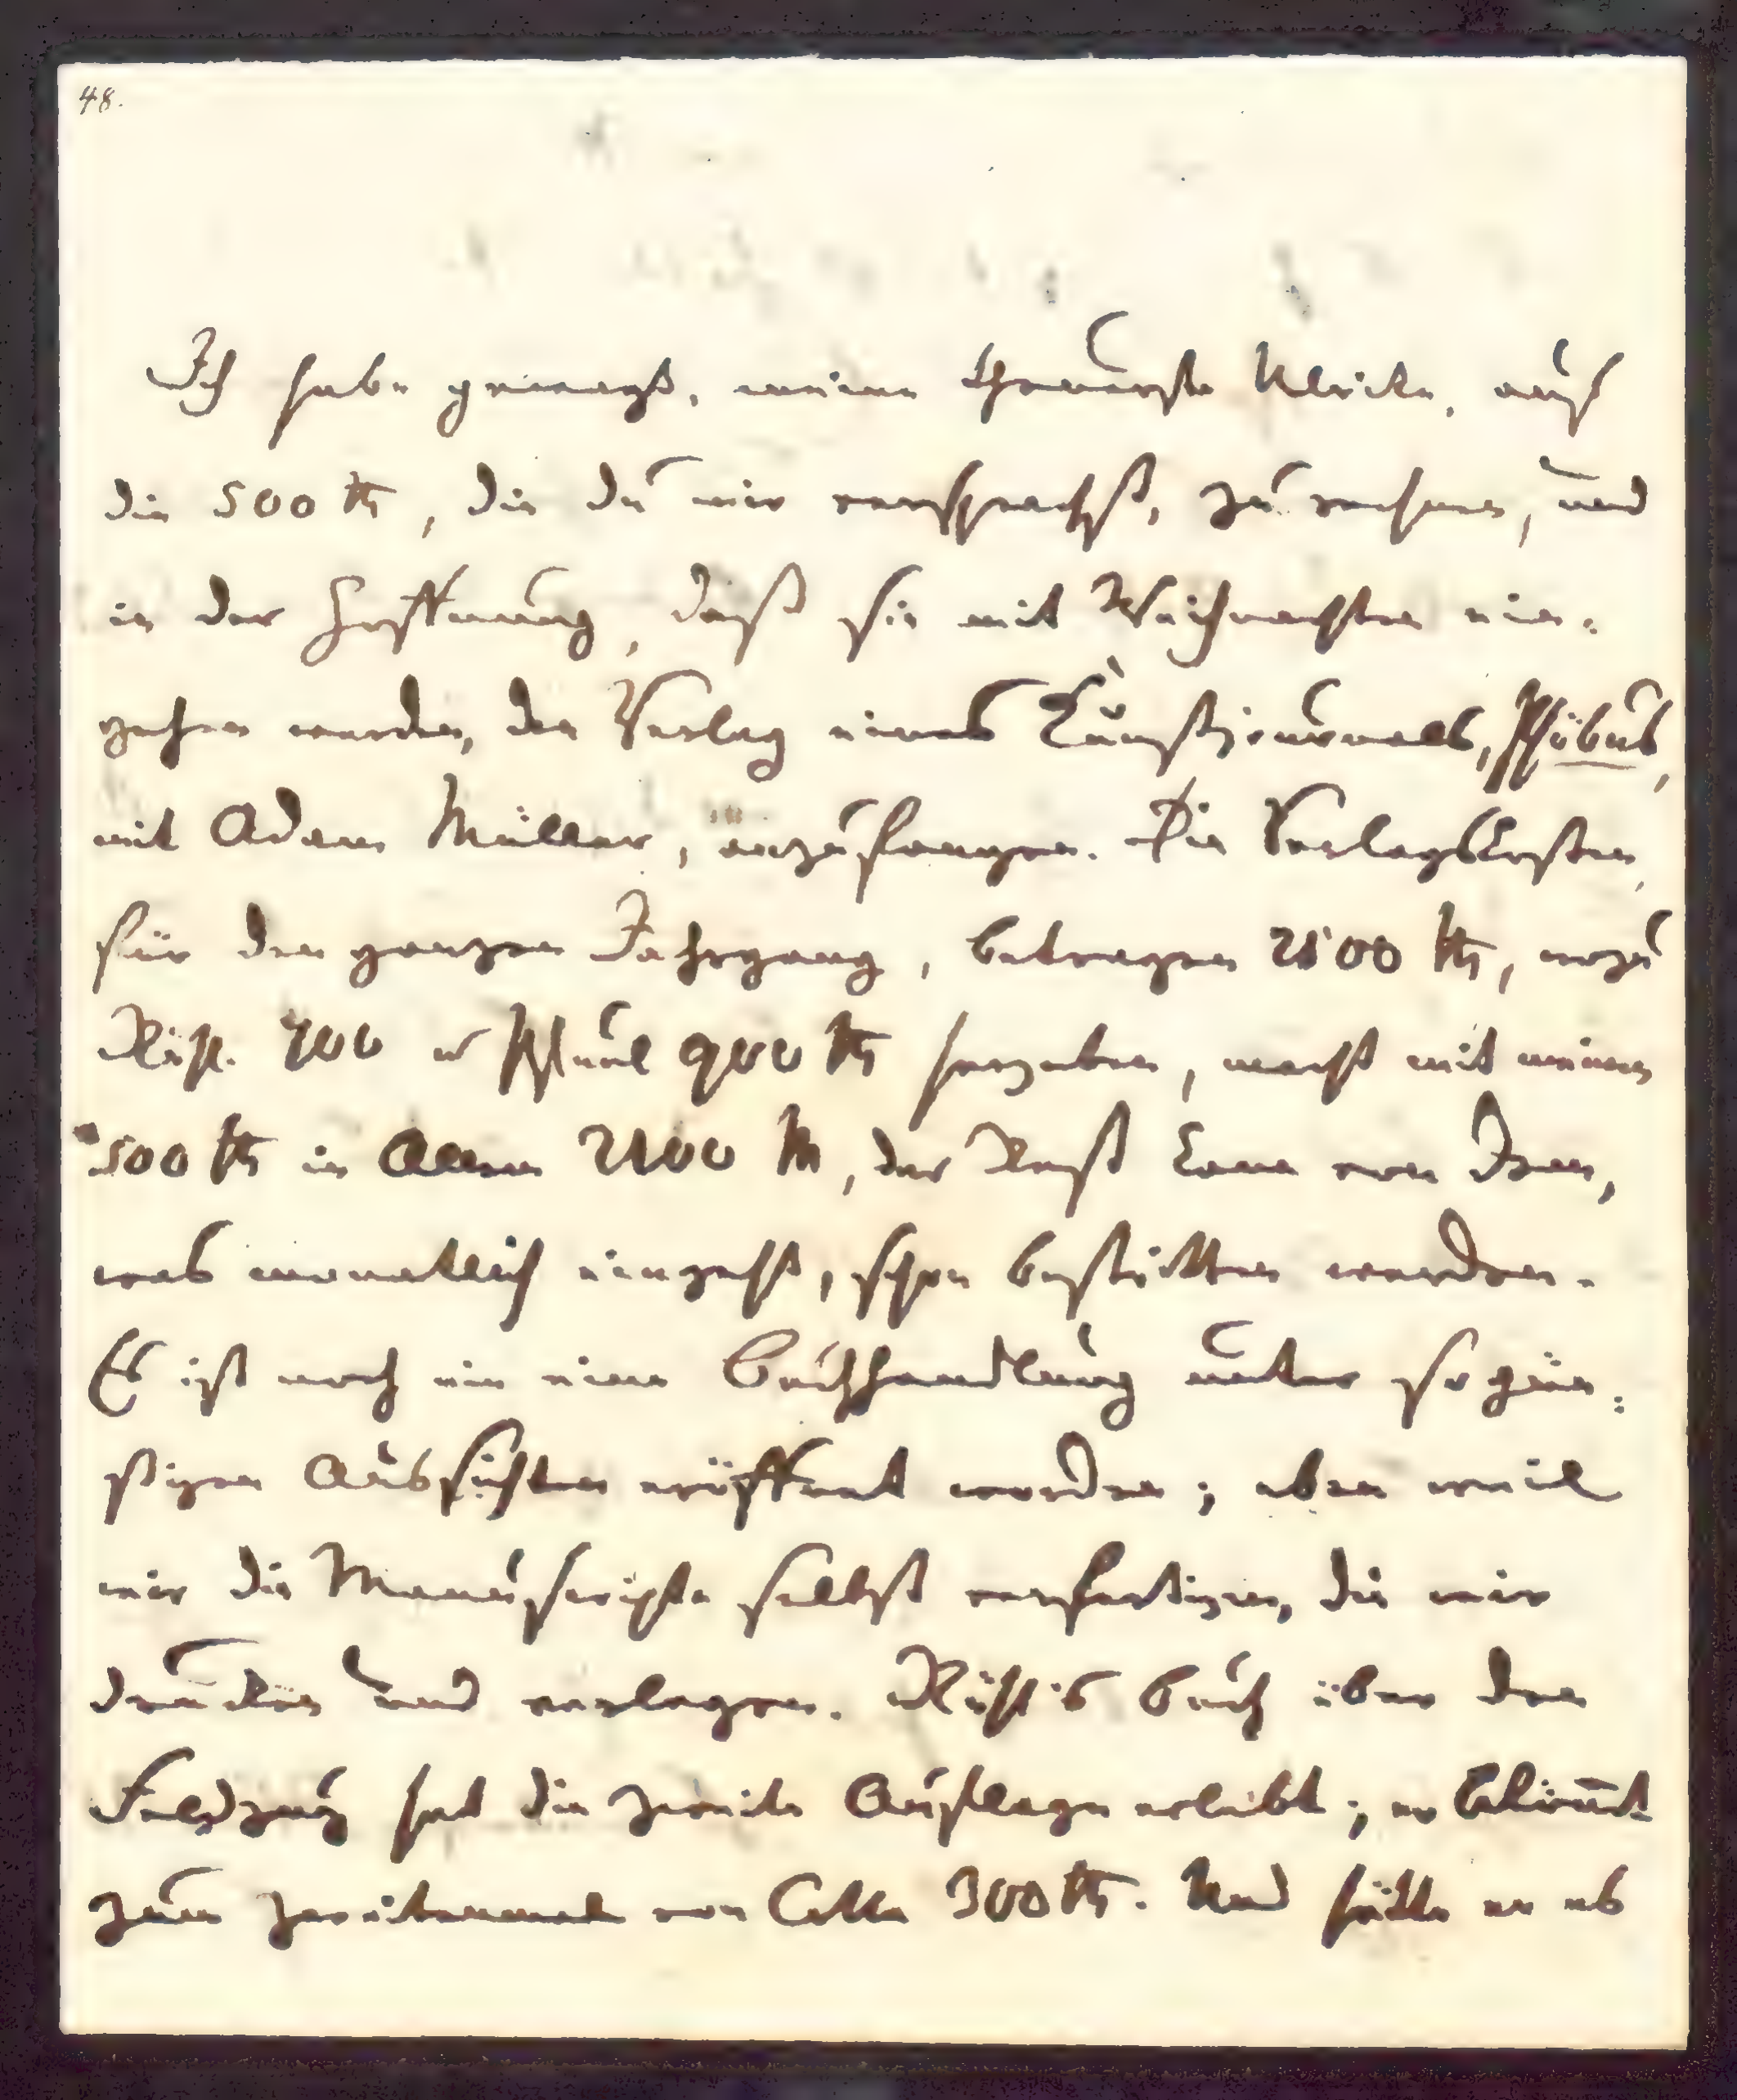 48.
Ich habe gewagt, meine theuerste Ulrike, auf
die 500 rth, die du mir versprachst, zu rechnen, und
in der Hoffnung, daß sie mit Weihnachten ein-
gehen werden, den Verlag eines Kunstjournals, Phöbus,
mit Adam Müller, anzufangen. Die Verlagskosten,
für den ganzen Jahrgang, betragen 2500 rth, wozu
Rühl. 700 u Pfuel 900 rth hergeben, macht mit meinen
500 rth in Allem 2100 rth, der Rest kann von dem,
was monatlich eingeht, schon bestritten werden.
Es ist noch nie eine Buchhandlung unter so gün-
stigen Aussichten eröffnet worden; eben weil
wir die Manuscripte selbst verfertigen, die wir
drucken und verlegen. Rühl's Buch über den
Feldzug hat die zweite Auflage erlebt; er bekömmt
zum zweitenmal von Cotta 300 rth. Und hätte er es